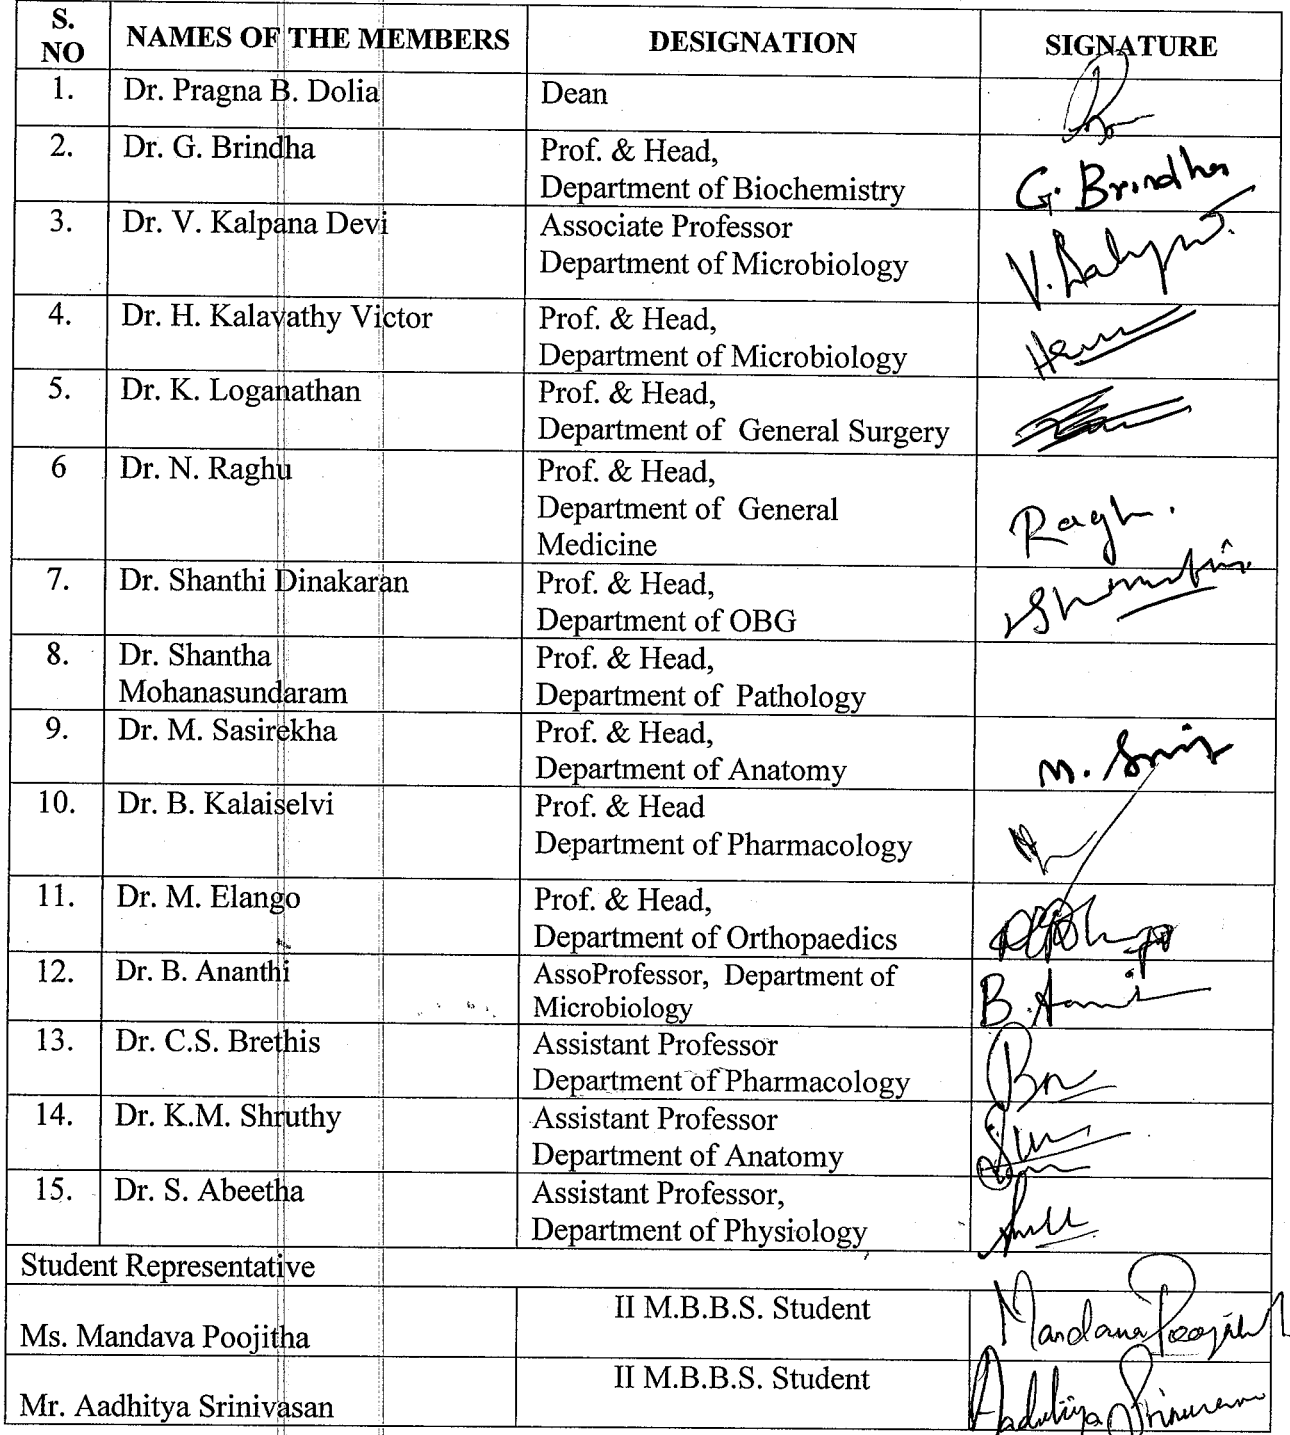 S. NO NAMES OF THE MEMBERS DESIGNATION SIGNATURE
1. Dr. Pragna B. Dolia Dean
2. Dr. G. Brindha Prof. & Head,
Department of Biochemistry G. Brindha
3. Dr. V. Kalpana Devi Associate Professor
Department of Microbiology
4. Dr. H. Kalavathy Victor Prof. & Head,
Department of Microbiology
5. Dr. K. Loganathan Prof. & Head,
Department of General Surgery
6 Dr. N. Raghu Prof. & Head,
Department of General
Medicine
7. Dr. Shanthi Dinakaran Prof. & Head,
Department of OBG
8. Dr. Shantha
Mohanasundaram Prof. & Head,
Department of Pathology
9. Dr. M. Sasirekha Prof. & Head,
Department of Anatomy
10. Dr. B. Kalaiselvi Prof. & Head
Department of Pharmacology
11. Dr. M. Elango Prof. & Head,
Department of Orthopaedics
12. Dr. B. Ananthi AssoProfessor, Department of
Microbiology
13. Dr. C.S. Brethis Assistant Professor
Department of Pharmacology
14. Dr. K.M. Shruthy Assistant Professor
Department of Anatomy
15. Dr. S. Abeetha Assistant Professor,
Department of Physiology
Student Representative
Ms. Mandava Poojitha II M.B.B.S. Student
Mr. Aadhitya Srinivasan II M.B.B.S. Student